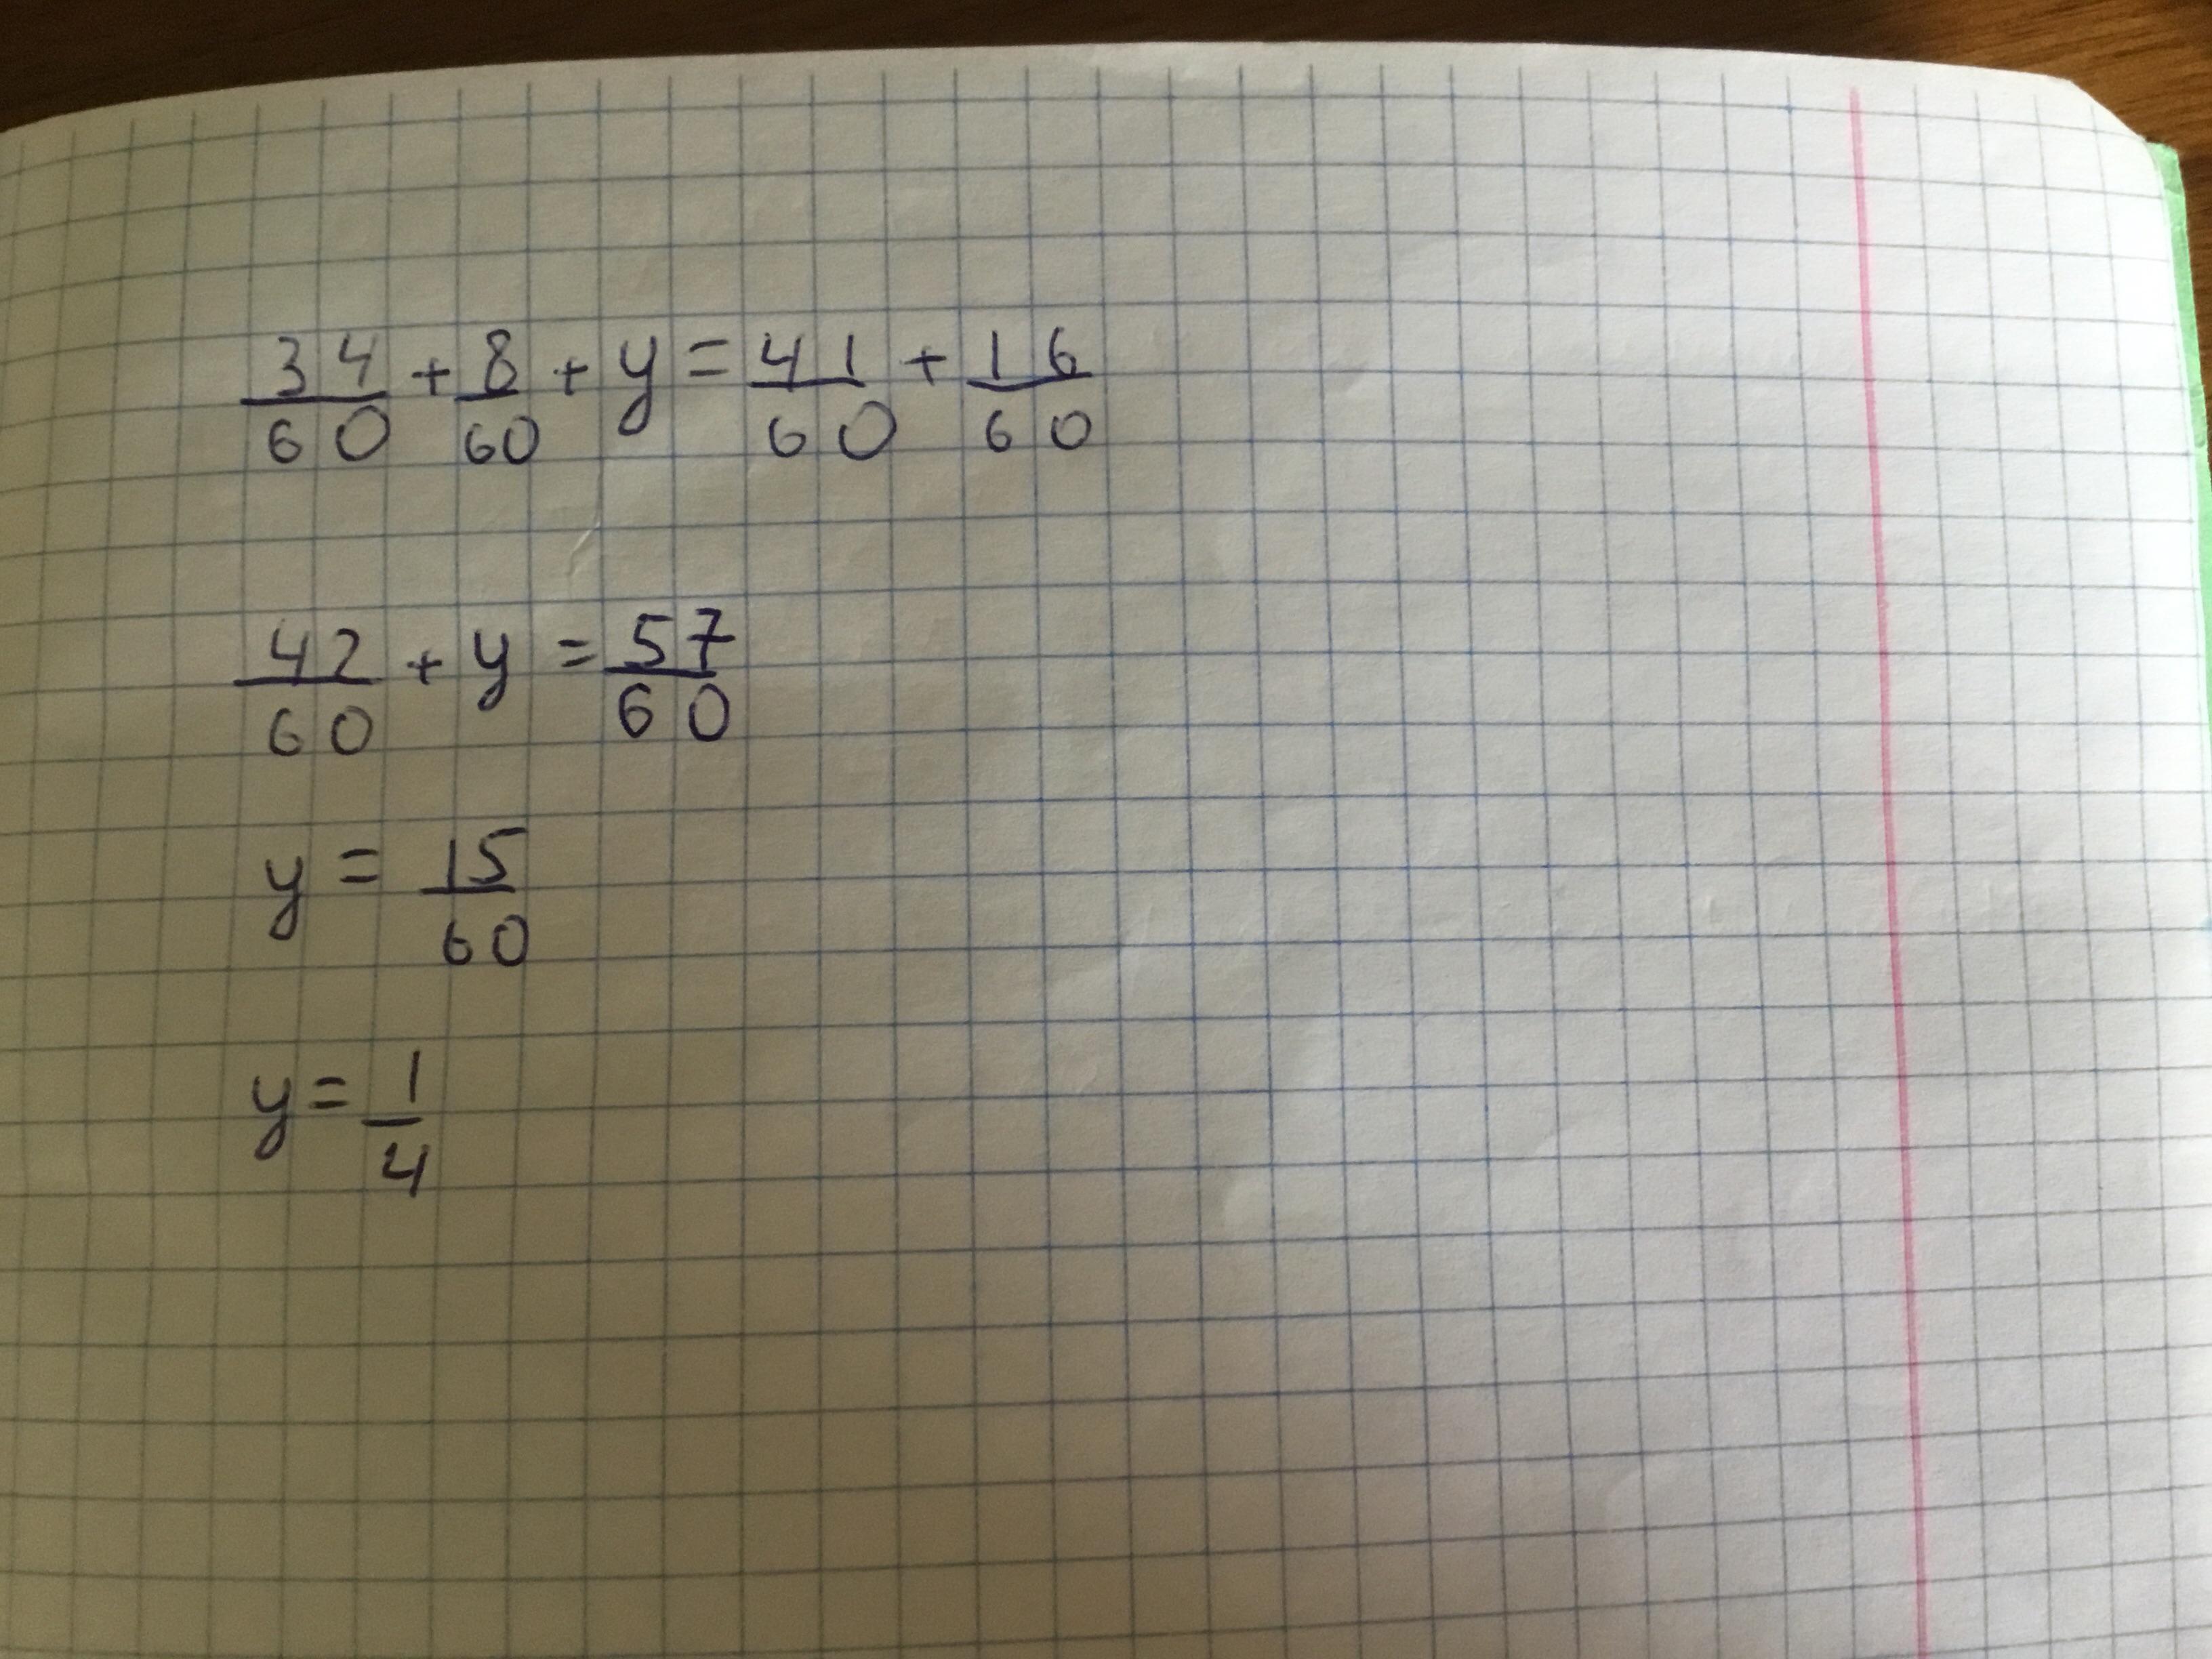 34/60 + 8/60 + y = 41/60 + 16/60
42/60 + y = 57/60
y = 15/60
y = 1/4